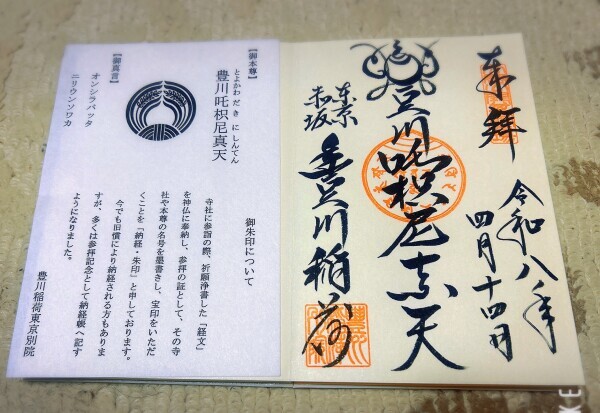 奉拝
令和八年
四月十四日
豊川吒枳尼真天
東京
赤坂
豊川稲荷
【御本尊】
とよかわ だ き に しんてん
豊川吒枳尼真天
【御真言】
オンシラバッタ
ニリウンソワカ
御朱印について
寺社に参詣の際、祈願浄書した「経文」
を神仏に奉納し、参拝の証として、その寺
社や本尊の名号を墨書きし、宝印をいただ
くことを「納経・朱印」と申しております。
今でも旧慣により納経される方もありま
すが、多くは参拝記念として納経帳へ記す
ようになりました。
豊川稲荷東京別院